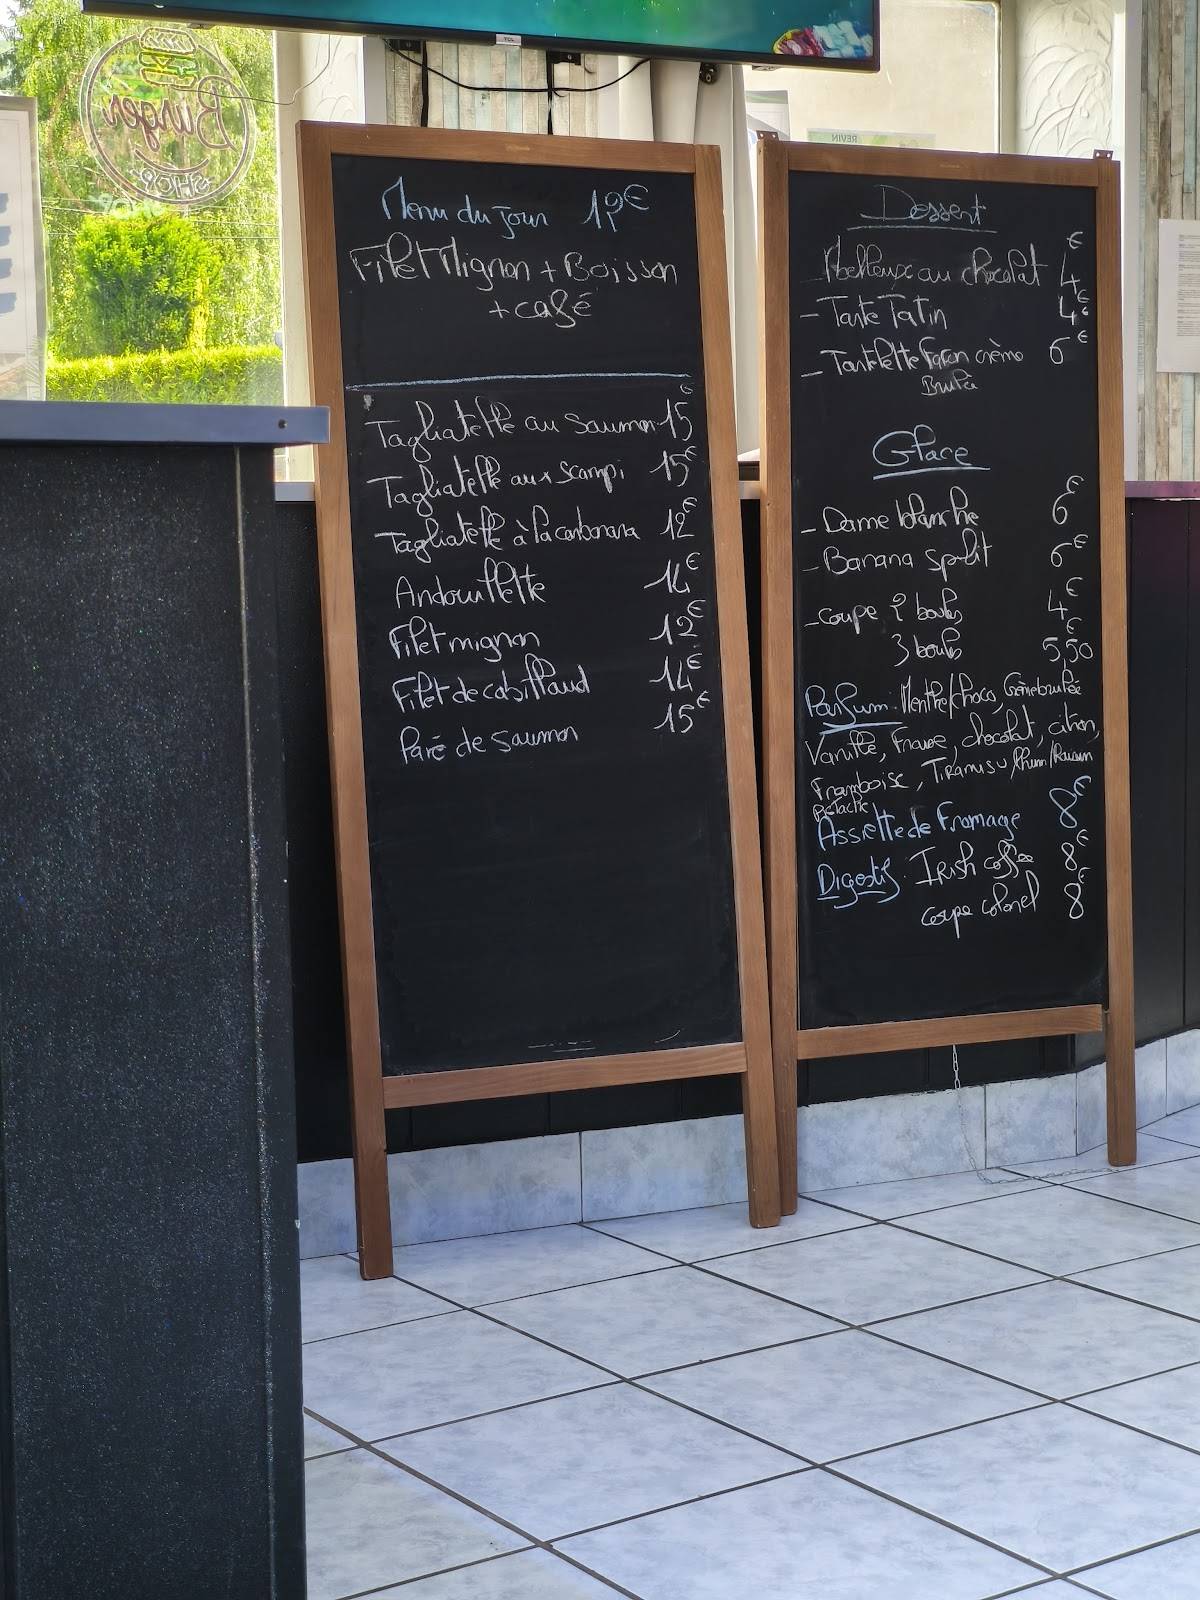 Burger
SHOP
TCL
REVIN
Menu du jour 12€
Filet Mignon + Boisson
+ café
Tagliatelle au saumon 15€
Tagliatelle aux scampi 15€
Tagliatelle à la carbonara 12€
Andouillette 14€
Filet mignon 12€
Filet de cabillaud 14€
Pavé de saumon 15€
Dessert
Moelleux au chocolat 4€
- Tarte Tatin 4€
- Tartelette Façon crème 6€
Brulée
Glace
- Dame blanche 6€
- Banana split 6€
- coupe 2 boules 4€
3 boules 5,50€
Parfum: Menthe/choco, Crème brulée
Vanille, Fraise, chocolat, citron,
Framboise, Tiramisu, Rhum/Raisin
Pistache
Assiette de Fromage 8€
Digestif: Irish coffee 8€
coupe colonel 8€